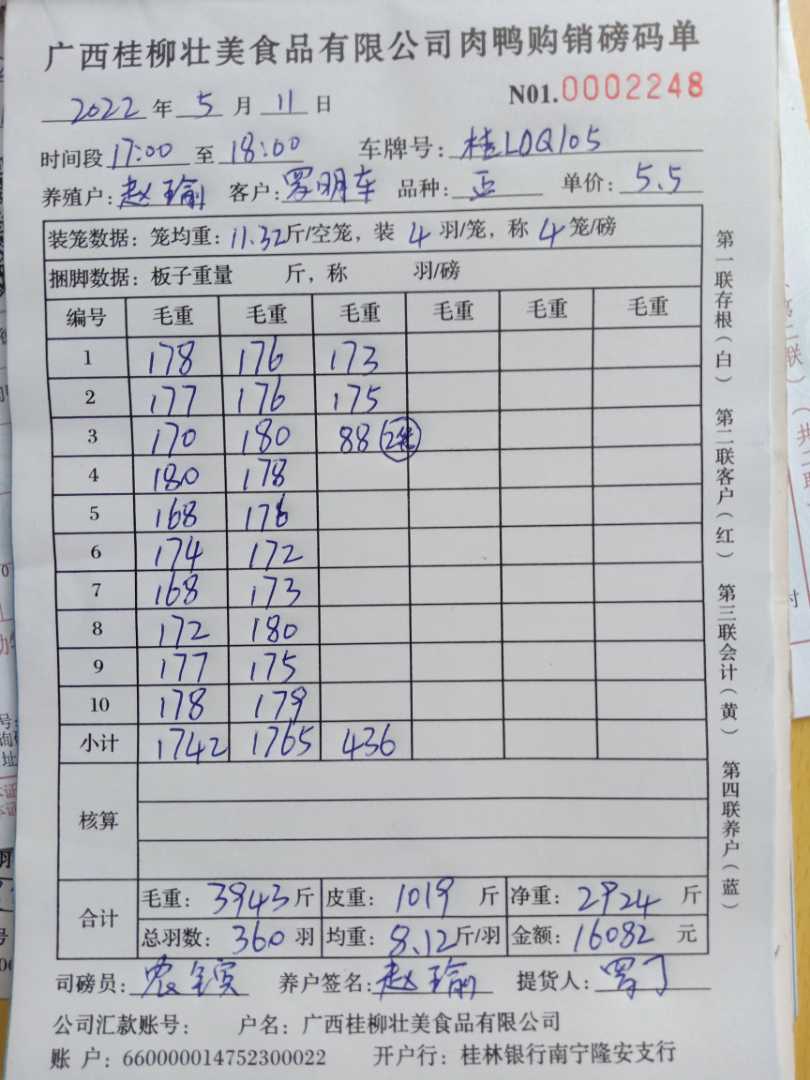 广西桂柳壮美食品有限公司肉鸭购销磅码单
2022 年 5 月 11 日 N01.0002248
时间段 17:00 至 18:00 车牌号: 桂LDQ105
养殖户: 赵瑜 客户: 罗明车 品种: 正 单价: 5.5
装笼数据: 笼均重: 11.32斤/空笼, 装 4 羽/笼, 称 4 笼/磅
捆脚数据: 板子重量 斤, 称 羽/磅
编号 毛重 毛重 毛重 毛重 毛重 毛重
1 178 176 173
2 177 176 175
3 170 180 88 2笼
4 180 178
5 168 176
6 174 172
7 168 173
8 172 180
9 177 175
10 178 179
小计 1742 1765 436
核算
合计
毛重: 3943斤 皮重: 1019 斤 净重: 2924 斤
总羽数: 360 羽 均重: 8.12斤/羽 金额: 16082 元
司磅员: 养户签名: 赵瑜 提货人:
公司汇款账号: 户名: 广西桂柳壮美食品有限公司
账 户: 660000014752300022 开户行: 桂林银行南宁隆安支行
第一联存根(白) 第二联客户(红) 第三联会计(黄) 第四联养户(蓝)